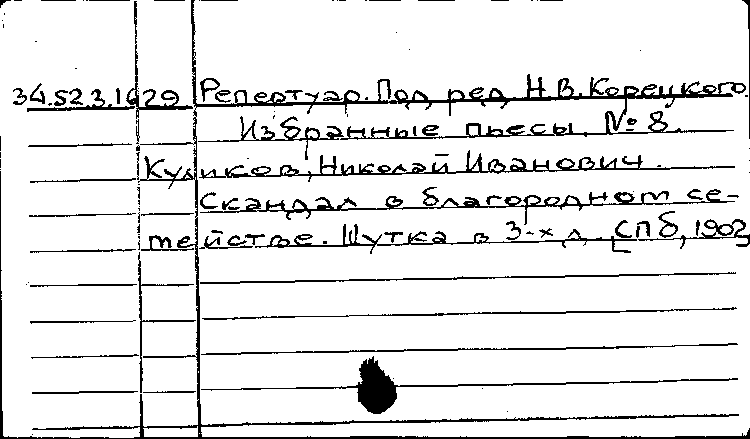 34.52.3.1629 Репертуар. Под ред. Н.В. Корецкого.
Избранные пьесы. № 8.
Куликов, Николай Иванович.
Скандал в благородном се-
мействе. Шутка в 3-х д. [СПб, 1902